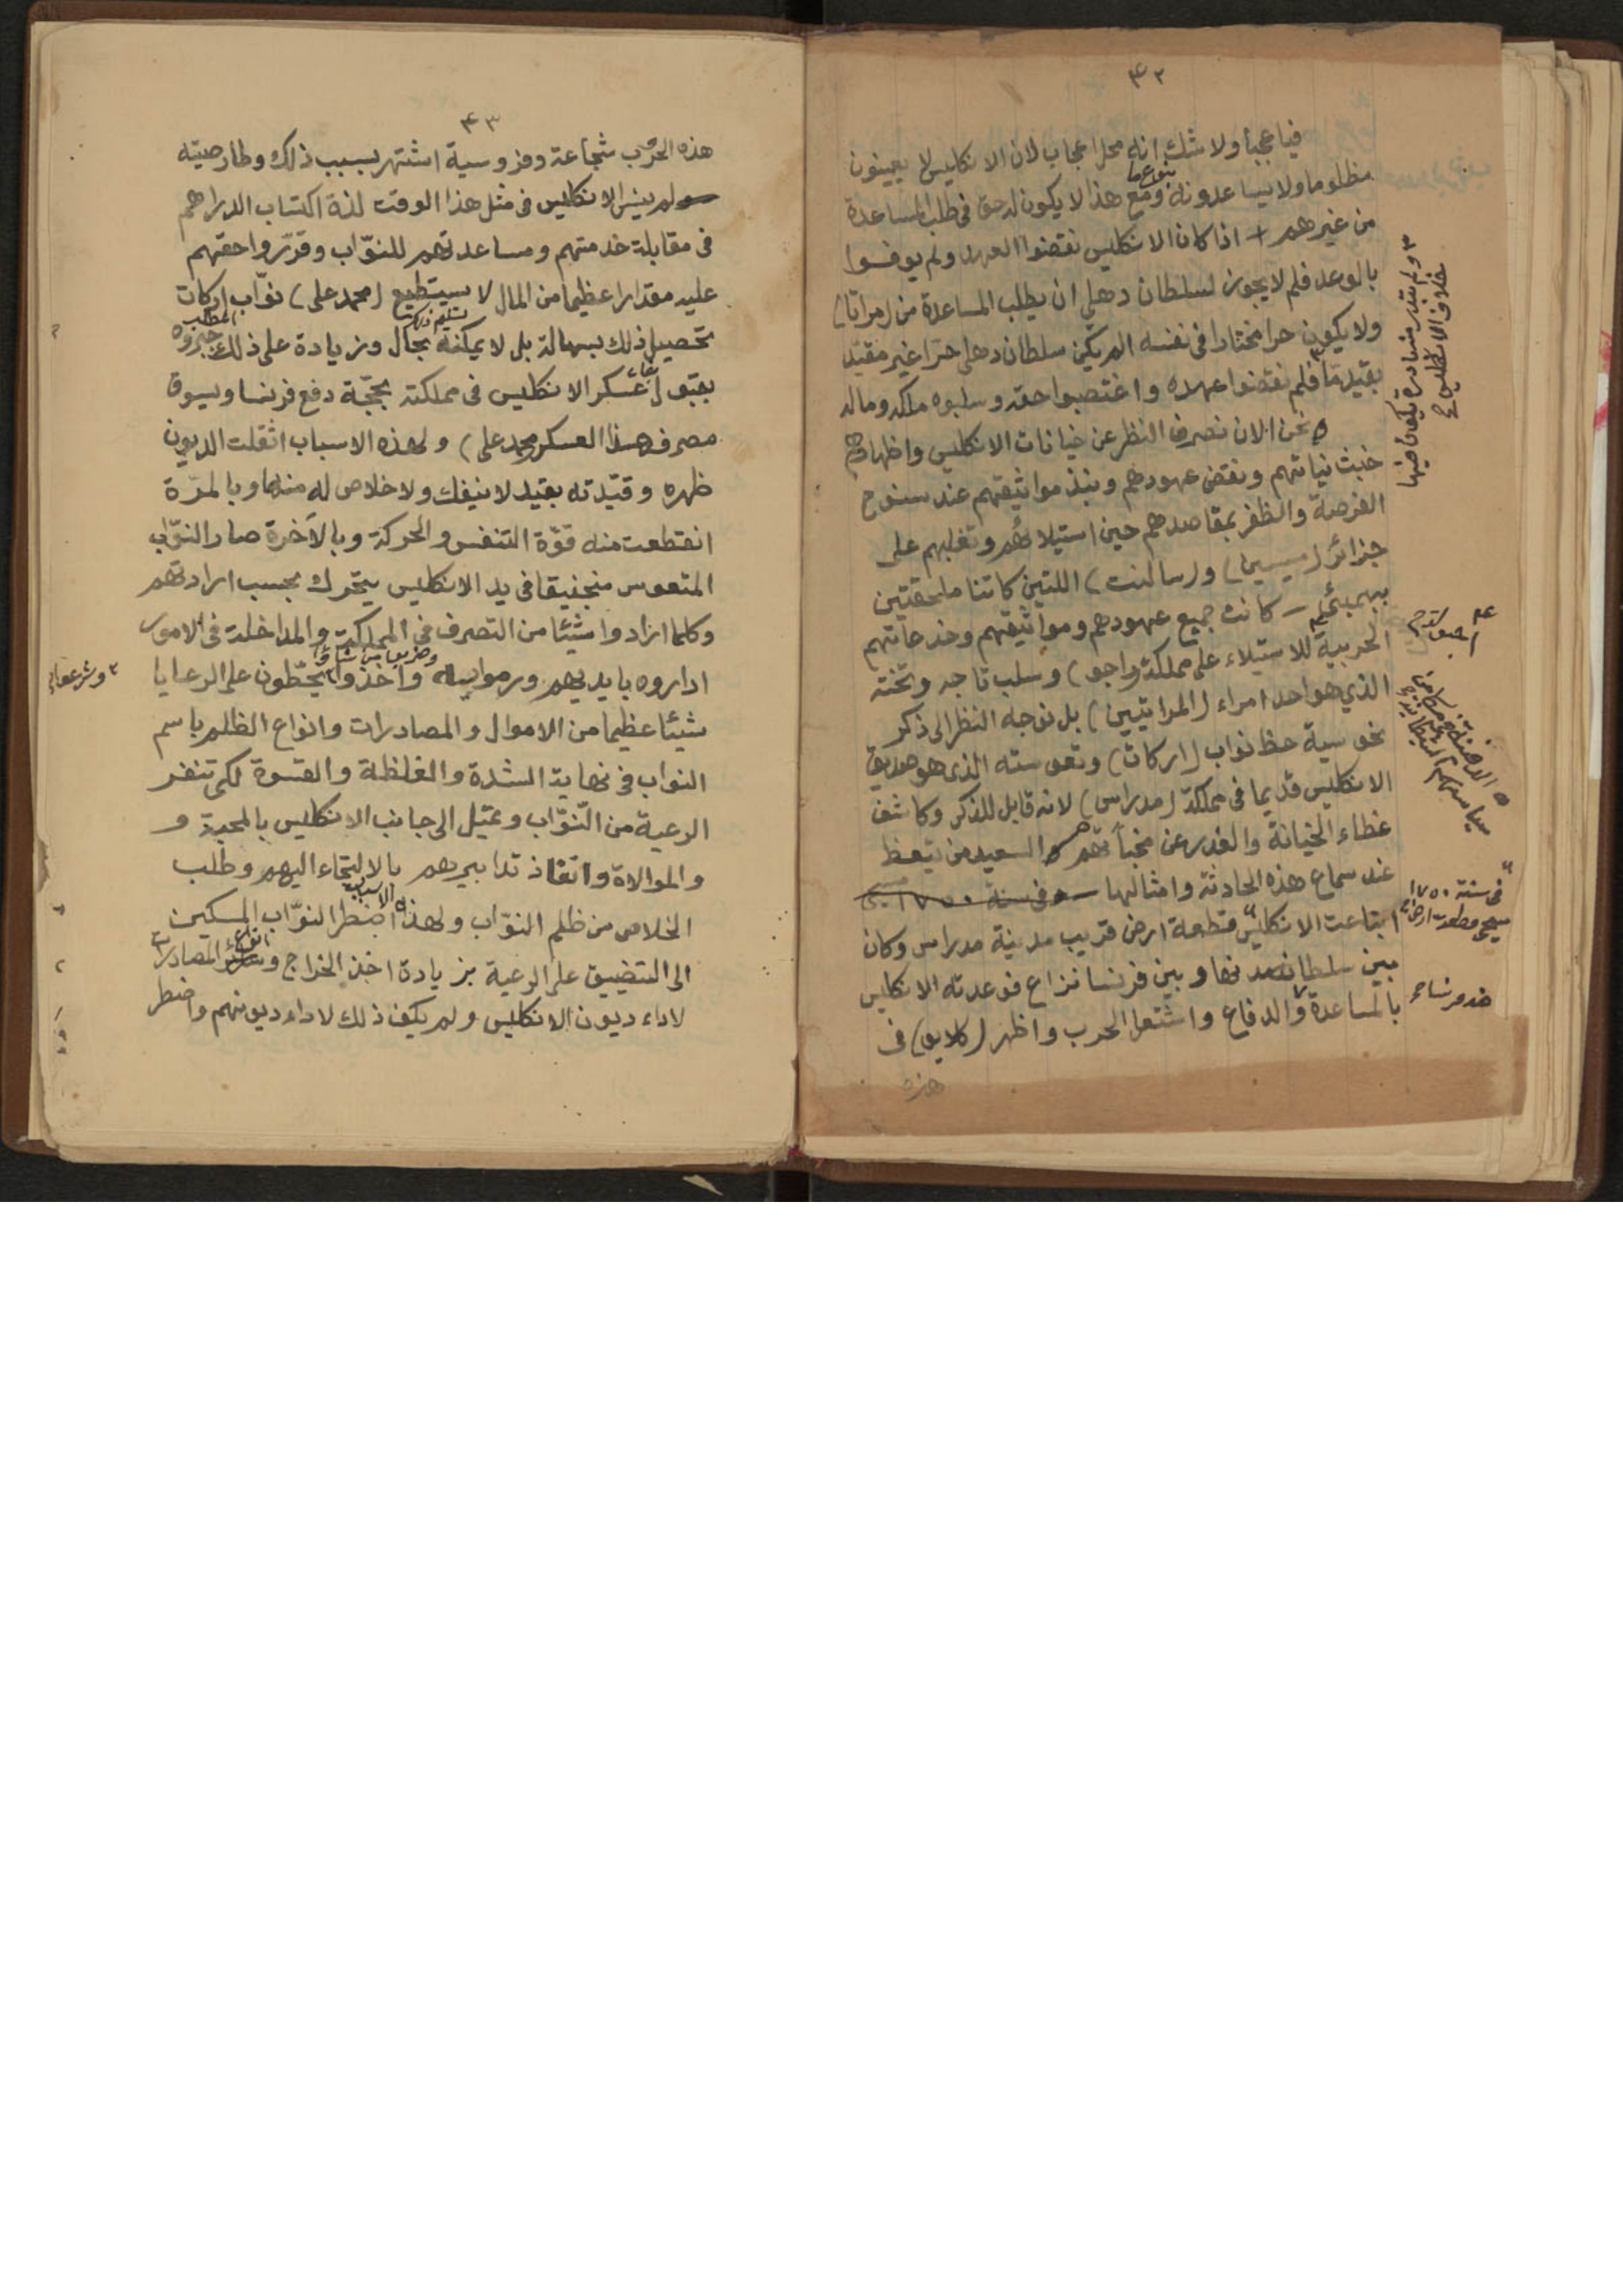 ٤٢
فيا عجبا ولا شك انه محل اعجاب لان الانكليس لا يعينون
مظلوما ولا يساعدونه ومع هذا لا يكون له حق فى طلب المساعدة
من غيرهم + اذا كان الانكليس نقضوا العهد ولم يوفوا
بالوعد فلم لا يجوز لسلطان دهلى ان يطلب المساعدة من (مراتا)
ولا يكون حرا مختارا فى نفسه الم يكن سلطان دهلى حرّا غير مقيّد
بقيد مّا فلم نقضوا عهده واغتصبوا حقه وسلبوه ملكه وماله
نحن الان نصرف النظر عن خيانات الانكليس واظهارهم
خبث نياتهم ونقض عهودهم ونبذ مواثيقهم عند سنوح
الفرصة والظفر بمقاصدهم حين استيلائهم وتغلبهم على
جزائر (ميسيما) و (سالنت) اللتين كانتا ملحقتين
ببمبئى كانت جميع عهودهم ومواثيقهم وخدعاتهم
الحربية للاستيلاء على مملكة (واجو) وسلب تاجه وتخته
الذي هو احد امراء (المراتيين) بل نوجه النظر الى ذكر
نحوسية حظ نواب (اركات) وتعوسته الذى هو صديق
الانكليس قديما فى مملكة (مدراس) لانه قابل للذكر وكاشف
غطاء الخيانة والغدر عن مخبآتهم والسعيد من يتعظ
عند سماع هذه الحادثة وامثالها وفى سنة ١٧٥٠
فى سنة ١٧٥٠
ابتاعت الانكليس قطعة ارض قريب مدينة مدراس وكان
بين سلطان وبين فرنسا نزاع فوعدته الانكليس
ضد فرنسا
بالمساعدة والدفاع واشتعل الحرب واظهر (كلايو) فى
هذه
٤٣
هذه الحرب شجاعة وفروسية اشتهر بسبب ذلك وطار صيته
ولم ينس الانكليس فى مثل هذا الوقت لذة اكتساب الدراهم
فى مقابلة خدمتهم ومساعدتهم للنوّاب وقرّروا حقهم
عليه مقدارا عظيما من المال لا يستطيع (محمد على) نوّاب اركات
تحصيل ذلك بسهالة بل لا يمكنه بحال وزيادة على ذلك جبروه
بقبول بقاء عسكر الانكليس فى مملكته بحجّة دفع فرنسا ويسوق
مصرف هذا العسكر محمد على) ولهذه الاسباب اثقلت الديون
ظهره وقيّدته بقيد لا ينفك ولا خلاص له منها وبالمرّة
انقطعت منه قوّة التنفس والحركة وبالآخرة صار النوّاب
المتعوس منجنيقا فى يد الانكليس يتحرك بحسب ارادتهم
وكلما ارادوا شيئا من التصرف فى المملكة والمداخلة فى الامور
اداروه بايديهم ورموا به واخذوا يحطّون على الرعايا
شيئا عظيما من الاموال والمصادرات وانواع الظلم باسم
النواب فى نهاية الشدة والغلظة والقسوة لكى تنفر
الرعية من النّوّاب وتميل الى جانب الانكليس بالمحبة و
والموالاة واتخاذ تدابيرهم بالالتجاء اليهم وطلب
الخلاص من ظلم النوّاب ولهذه الاسباب اضطر النوّاب المسكين
الى التضييق على الرعية بزيادة اخذ الخراج وانواع المصادرات
لاداء ديون الانكليس ولم يكف ذلك لاداء ديونهم واضطر